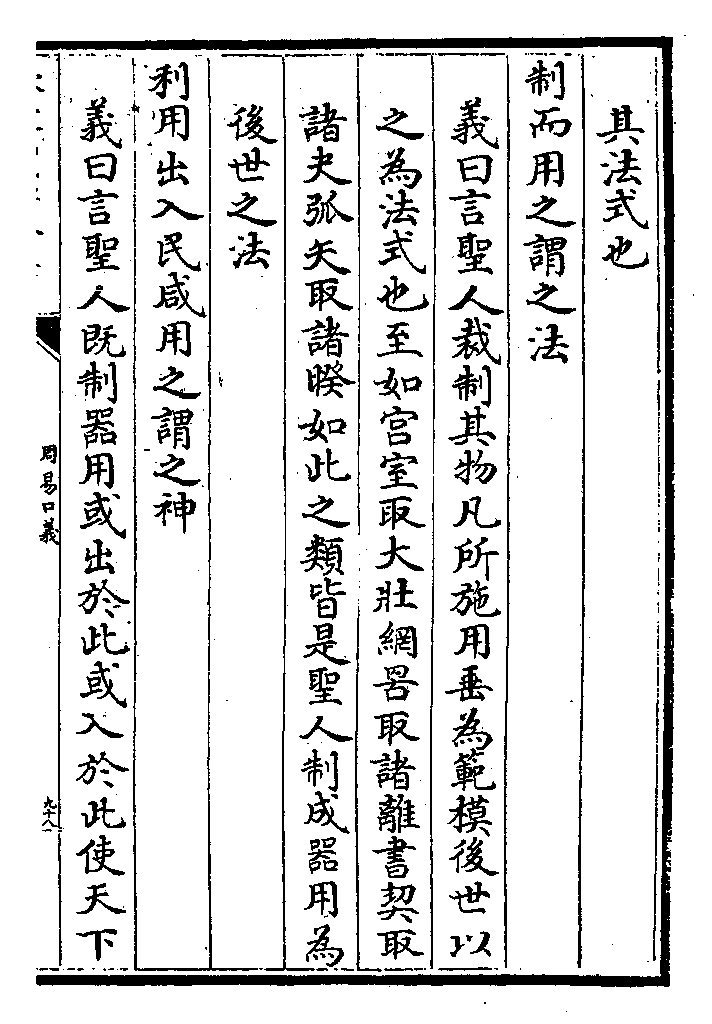 其法式也
制而用之謂之法
義曰言聖人裁制其物凡所施用垂為範模後世以
之為法式也至如宫室取大壯網罟取諸離書契取
諸夬弧矢取諸暌如此之類皆是聖人制成器用為
後世之法
利用出入民咸用之謂之神
義曰言聖人既制器用或出於此或入於此使天下
周易口義